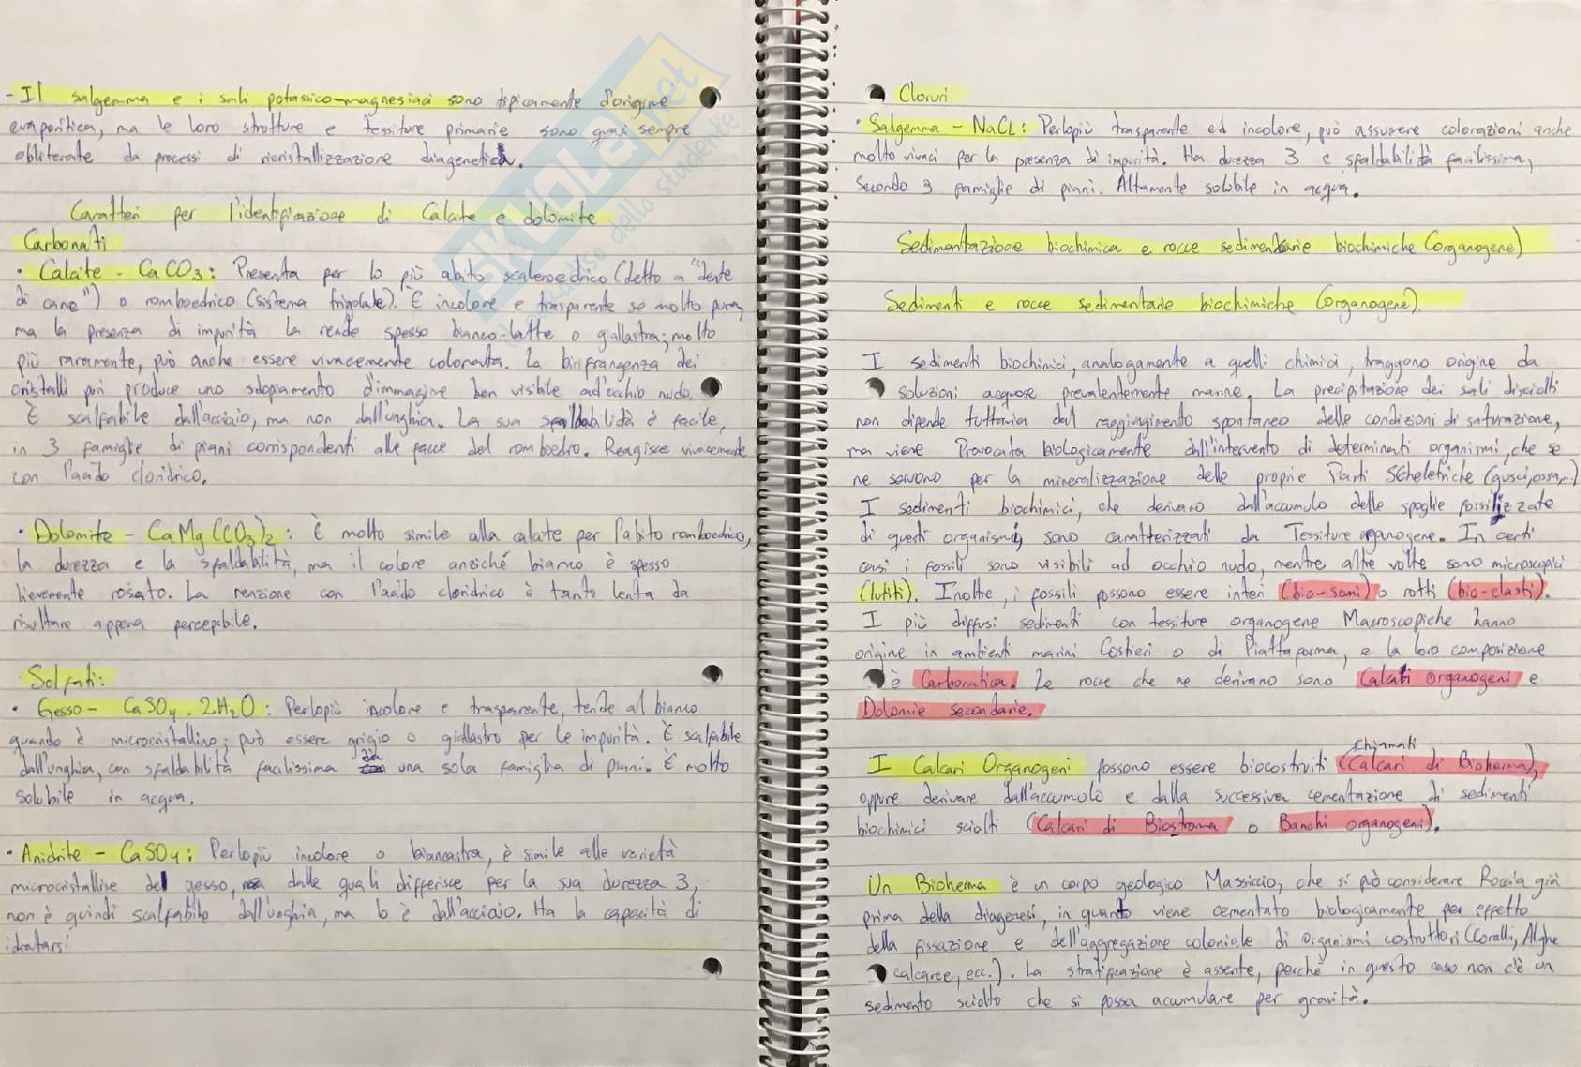 - Il salgemma e i sali potassico-magnesiaci sono tipicamente d'origine
evaporitica, ma le loro strutture e tessiture primarie sono quasi sempre
obliterate da processi di ricristallizzazione diagenetica.
Caratteri per l'identificazione di Calcite e dolomite
Carbonati
• Calcite - CaCO3: Presenta per lo più abito scalenoedrico (detto a "dente
di cane") o romboedrico (sistema trigonale). È incolore e trasparente se molto pura,
ma la presenza di impurità la rende spesso bianco-latte o giallastra; molto
più raramente, può anche essere vivacemente colorata. La birifrangenza dei
cristalli puri produce uno sdoppiamento d'immagine ben visibile ad occhio nudo.
È scalfibile dall'acciaio, ma non dall'unghia. La sua sfaldabilità è facile,
in 3 famiglie di piani corrispondenti alle facce del romboedro. Reagisce vivacemente
con l'acido cloridrico.
• Dolomite - CaMg(CO3)2: È molto simile alla calcite per l'abito romboedrico,
la durezza e la sfaldabilità, ma il colore anziché bianco è spesso
lievemente rosato. La reazione con l'acido cloridrico è tanto lenta da
risultare appena percepibile.
Solfati:
• Gesso - CaSO4 . 2H2O: Perlopiù incolore e trasparente, tende al bianco
quando è microcristallino; può essere grigio o giallastro per le impurità. È scalfibile
dall'unghia, con sfaldabilità facilissima da una sola famiglia di piani. È molto
solubile in acqua.
• Anidrite - CaSO4: Perlopiù incolore o biancastra, è simile alle varietà
microcristalline del gesso, dalle quali differisce per la sua durezza 3,
non è quindi scalfibile dall'unghia, ma lo è dall'acciaio. Ha la capacità di
idratarsi
Cloruri
• Salgemma - NaCl: Perlopiù trasparente ed incolore, può assumere colorazioni anche
molto vivaci per la presenza di impurità. Ha durezza 3 e sfaldabilità facilissima,
secondo 3 famiglie di piani. Altamente solubile in acqua.
Sedimentazione biochimica e rocce sedimentarie biochimiche (organogene)
Sedimenti e rocce sedimentarie biochimiche (organogene)
I sedimenti biochimici, analogamente a quelli chimici, traggono origine da
soluzioni acquose prevalentemente marine. La precipitazione dei sali disciolti
non dipende tuttavia dal raggiungimento spontaneo delle condizioni di saturazione,
ma viene Provocata biologicamente dall'intervento di determinati organismi, che se
ne servono per la mineralizzazione delle proprie Parti Scheletriche (gusci, ossa,..)
I sedimenti biochimici, che derivano dall'accumulo delle spoglie fossilizzate
di questi organismi, sono caratterizzati da Tessiture organogene. In certi
casi i fossili sono visibili ad occhio nudo, mentre altre volte sono microscopici
(lutiti). Inoltre, i fossili possono essere interi (bio-somi) o rotti (bio-clasti).
I più diffusi sedimenti con tessiture organogene Macroscopiche hanno
origine in ambienti marini Costieri o di Piattaforma, e la loro composizione
è Carbonatica. Le rocce che ne derivano sono Calcari Organogeni e
Dolomie secondarie.
I Calcari Organogeni possono essere biocostruiti (chiamati Calcari di Bioherma),
oppure derivare dall'accumulo e dalla successiva cementazione di sedimenti
biochimici sciolti (Calcari di Biostroma o Banchi organogeni).
Un Bioherma è un corpo geologico Massiccio, che si può considerare Roccia già
prima della diagenesi, in quanto viene cementato biologicamente per effetto
della fissazione e dell'aggregazione coloniale di organismi costruttori (Coralli, Alghe
calcaree, ecc.). La stratificazione è assente, perché in questo caso non c'è un
sedimento sciolto che si possa accumulare per gravità.